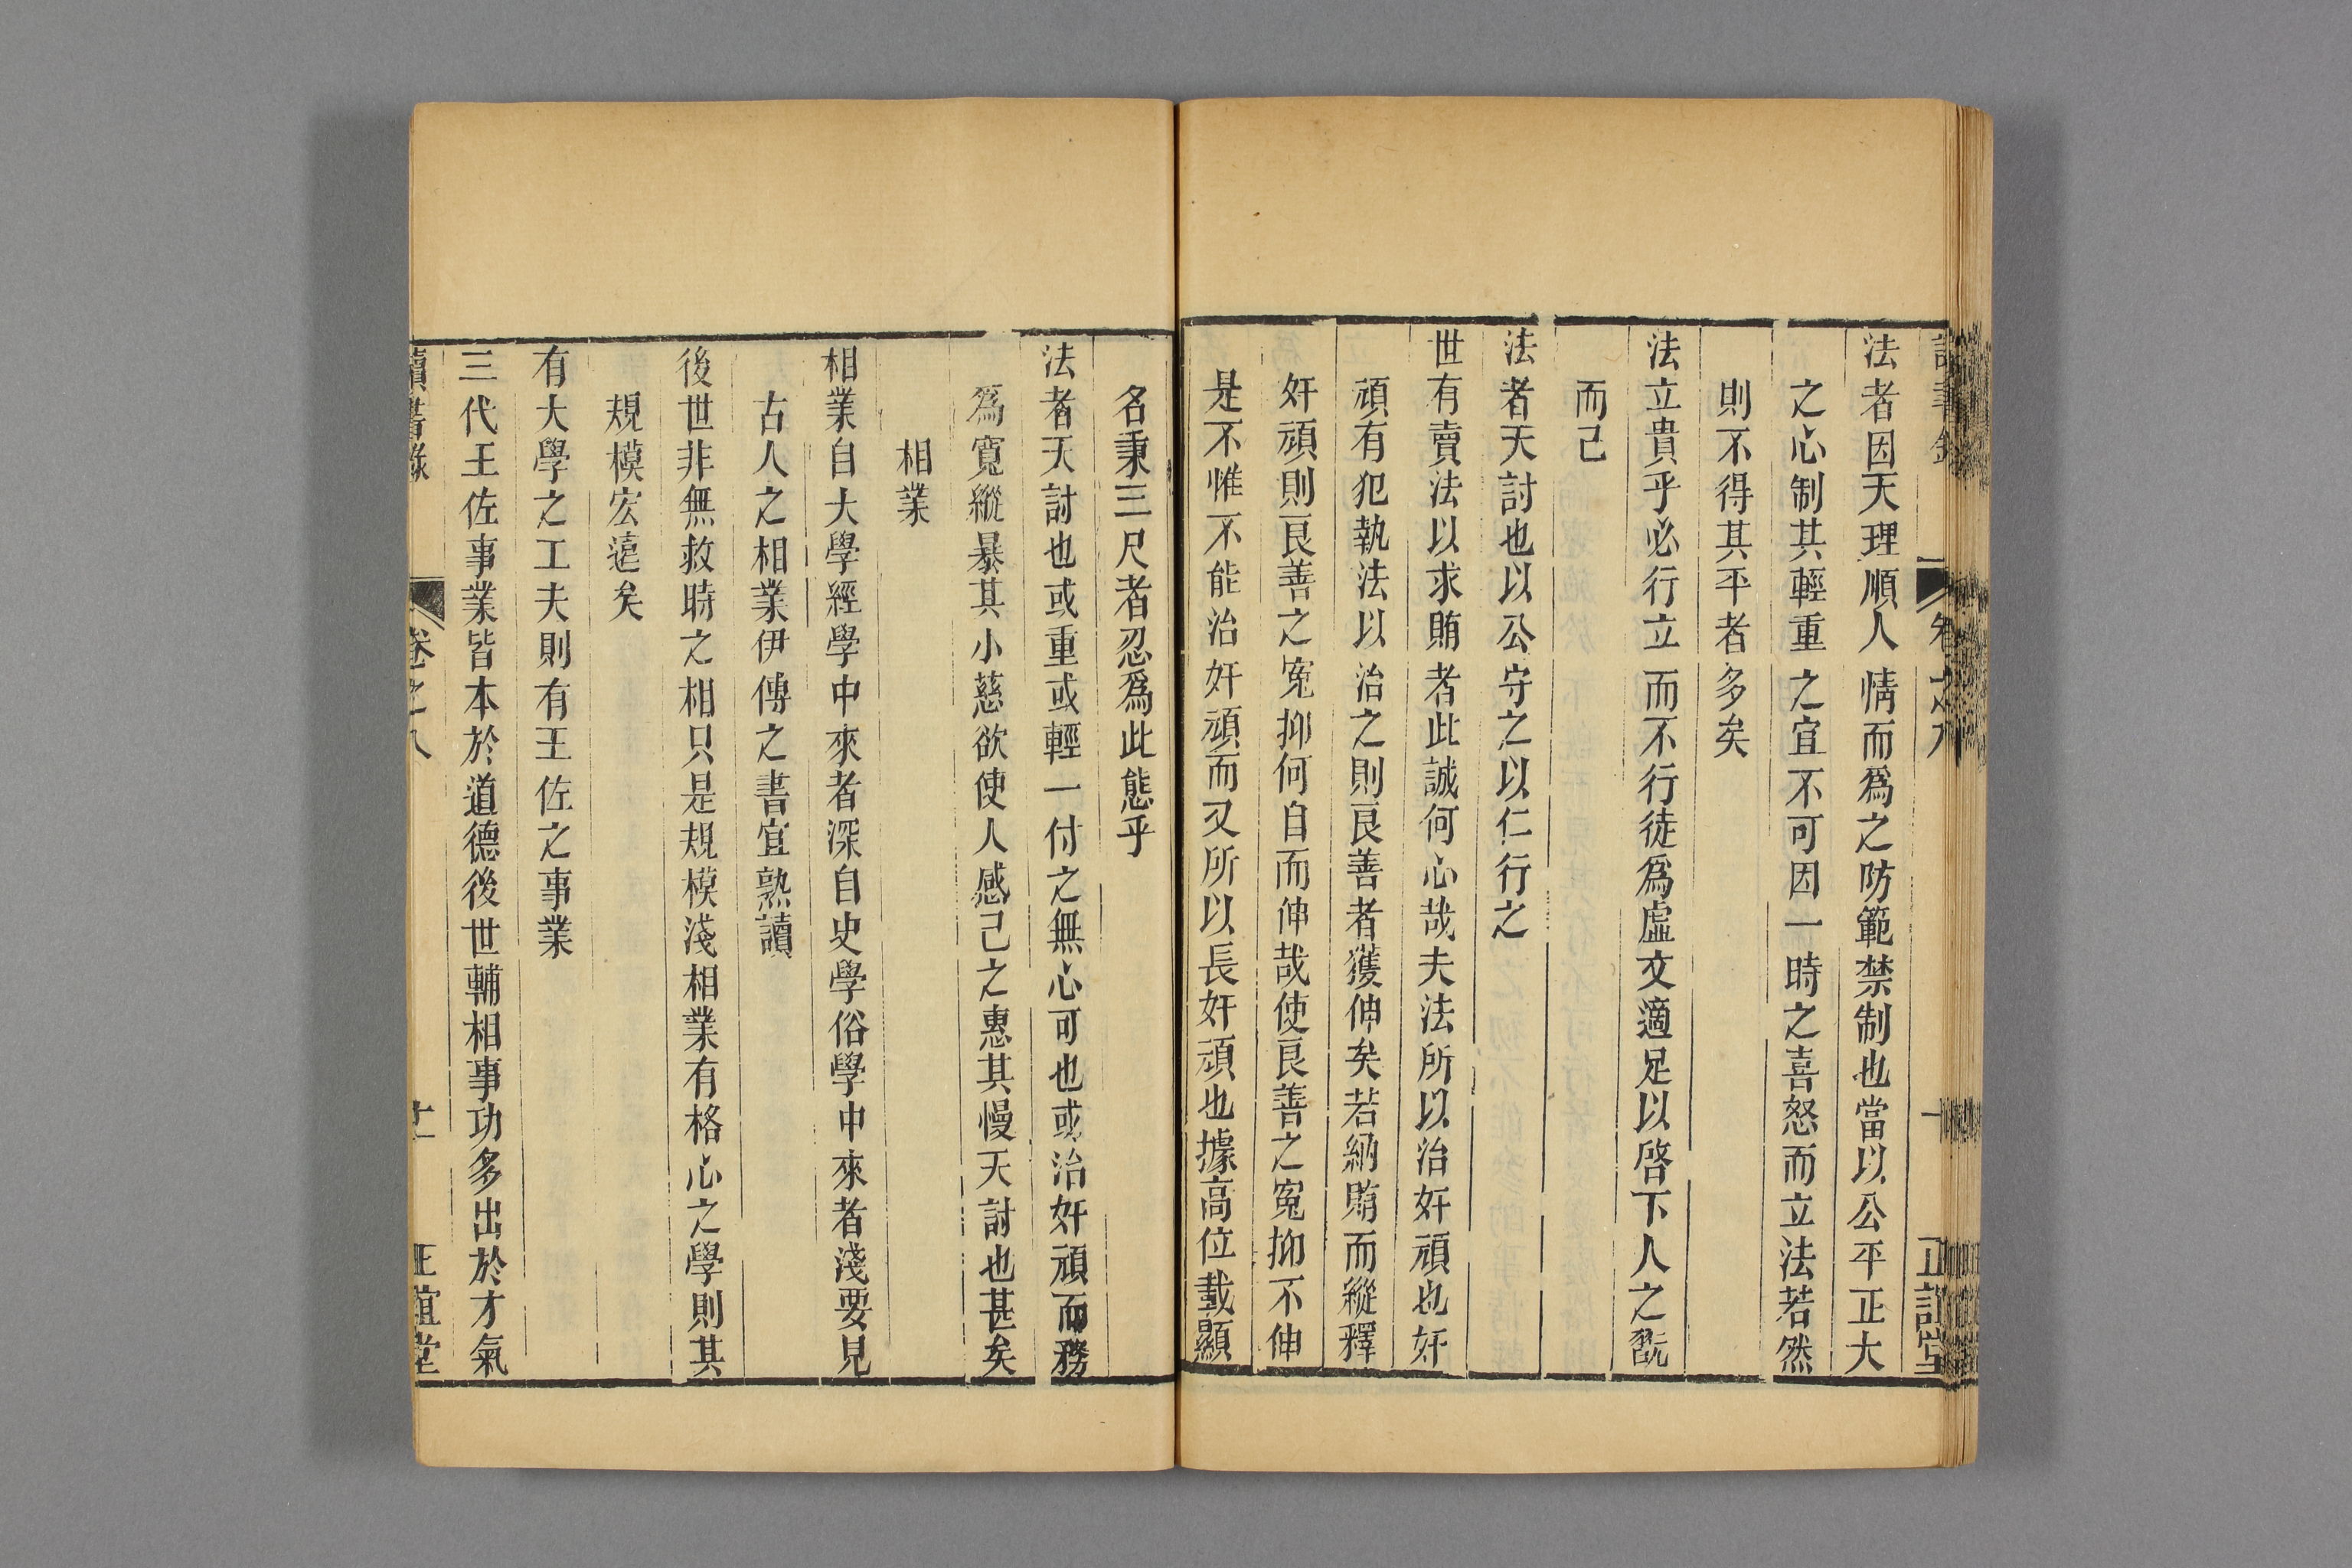 法者因天理順人情而爲之防範禁制也當以公平正大
之心制其輕重之宜不可因一時之喜怒而立法若然
則不得其平者多矣
法立貴乎必行立而不行徒爲虛文適足以啓下人之翫
而已
法者天討也以公守之以仁行之
世有賣法以求賄者此誠何心哉夫法所以治奸頑也奸
頑有犯執法以治之則良善者獲伸矣若納賄而縱釋
奸頑則良善之寃抑何自而伸哉使良善之寃抑不伸
是不惟不能治奸頑而又所以長奸頑也據高位載顯
名秉三尺者忍爲此態乎
法者天討也或重或輕一付之無心可也或治奸頑而務
爲寬縱暴其小慈欲使人感己之惠其慢天討也甚矣
相業
相業自大學經學中來者深自史學俗學中來者淺要見
古人之相業伊傅之書宜熟讀
後世非無救時之相只是規模淺相業有格心之學則其
規模宏遠矣
有大學之工夫則有王佐之事業
三代王佐事業皆本於道德後世輔相事功多出於才氣
讀書錄 卷之八 十一 正誼堂